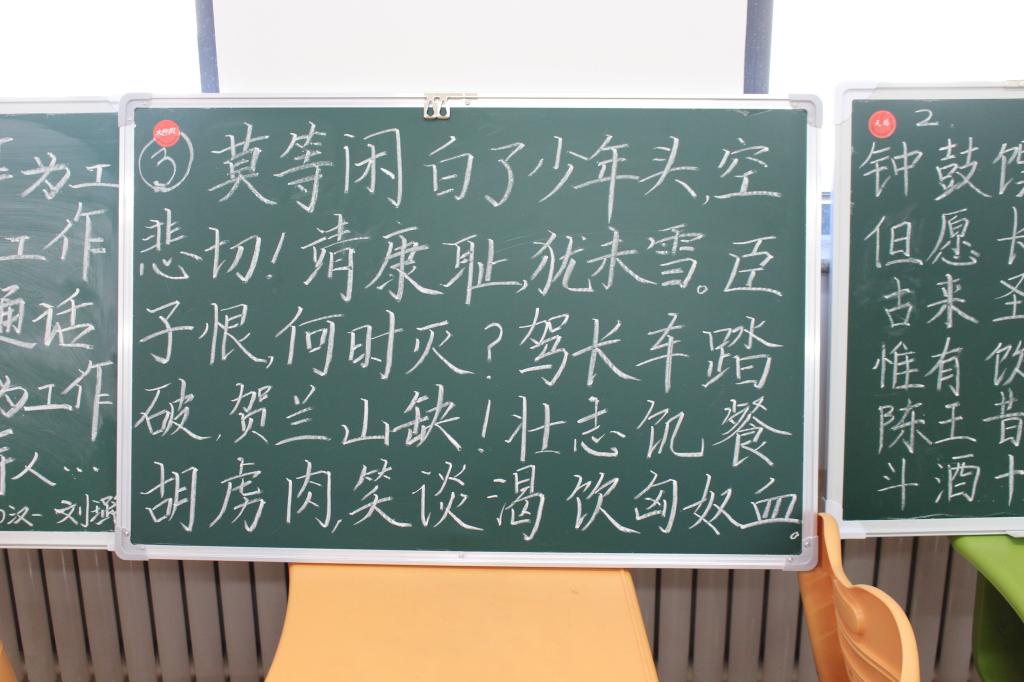 为工
工作
通话
为工作
人…
汉一刘
③莫等闲白了少年头,空
悲切!靖康耻,犹未雪。臣
子恨,何时灭?驾长车踏
破,贺兰山缺!壮志饥餐
胡虏肉,笑谈渴饮匈奴血。
2.
钟鼓馔
但愿长
古来圣
惟有饮
陈王昔
斗酒十